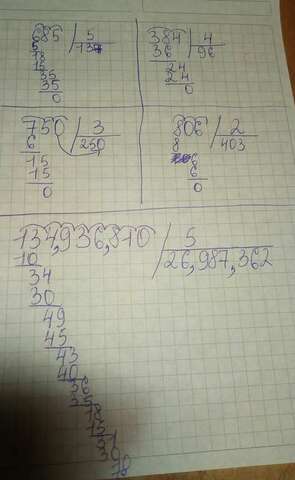 685 5
5 137
18
15
35
35
0
384 4
36 96
24
24
0
750 3
6 250
15
15
0
806 2
8 403
6
6
0
134,936,810 5
10 26,987,362
34
30
49
45
43
40
36
35
18
15
31
30
10